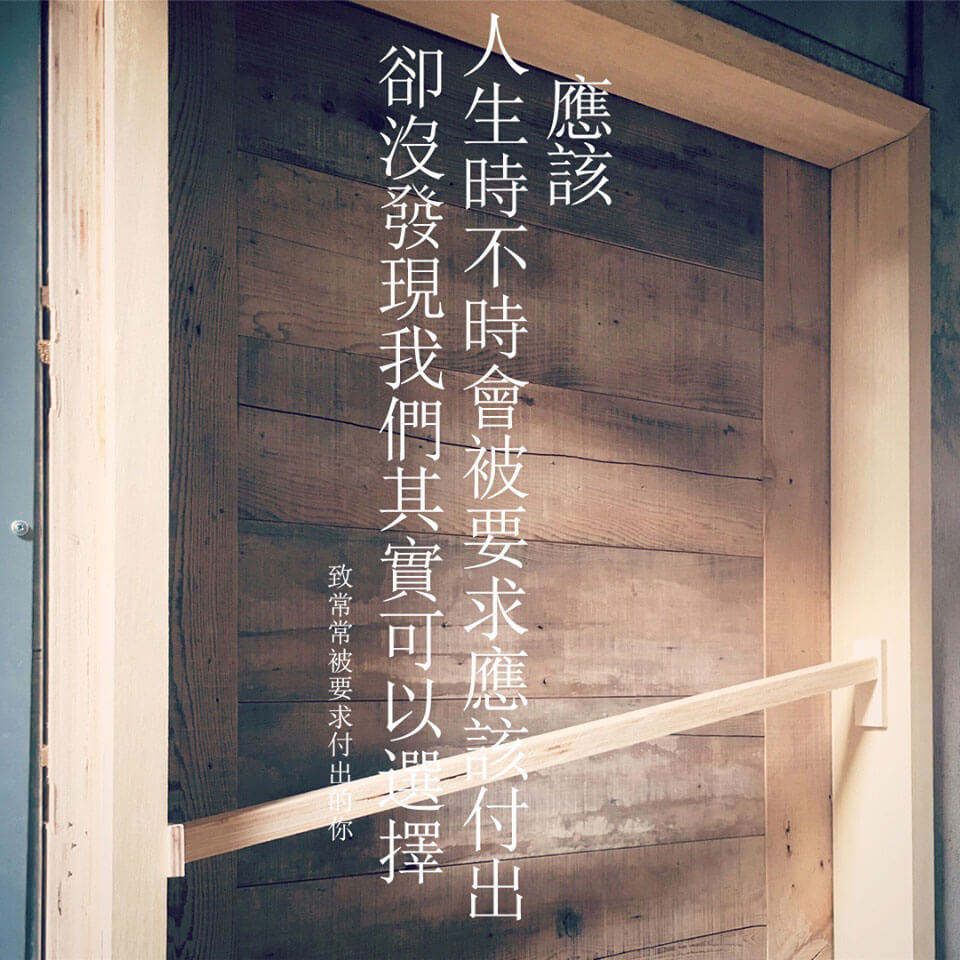 應該
人生時不時會被要求應該付出
卻沒發現我們其實可以選擇
致常常被要求付出的你